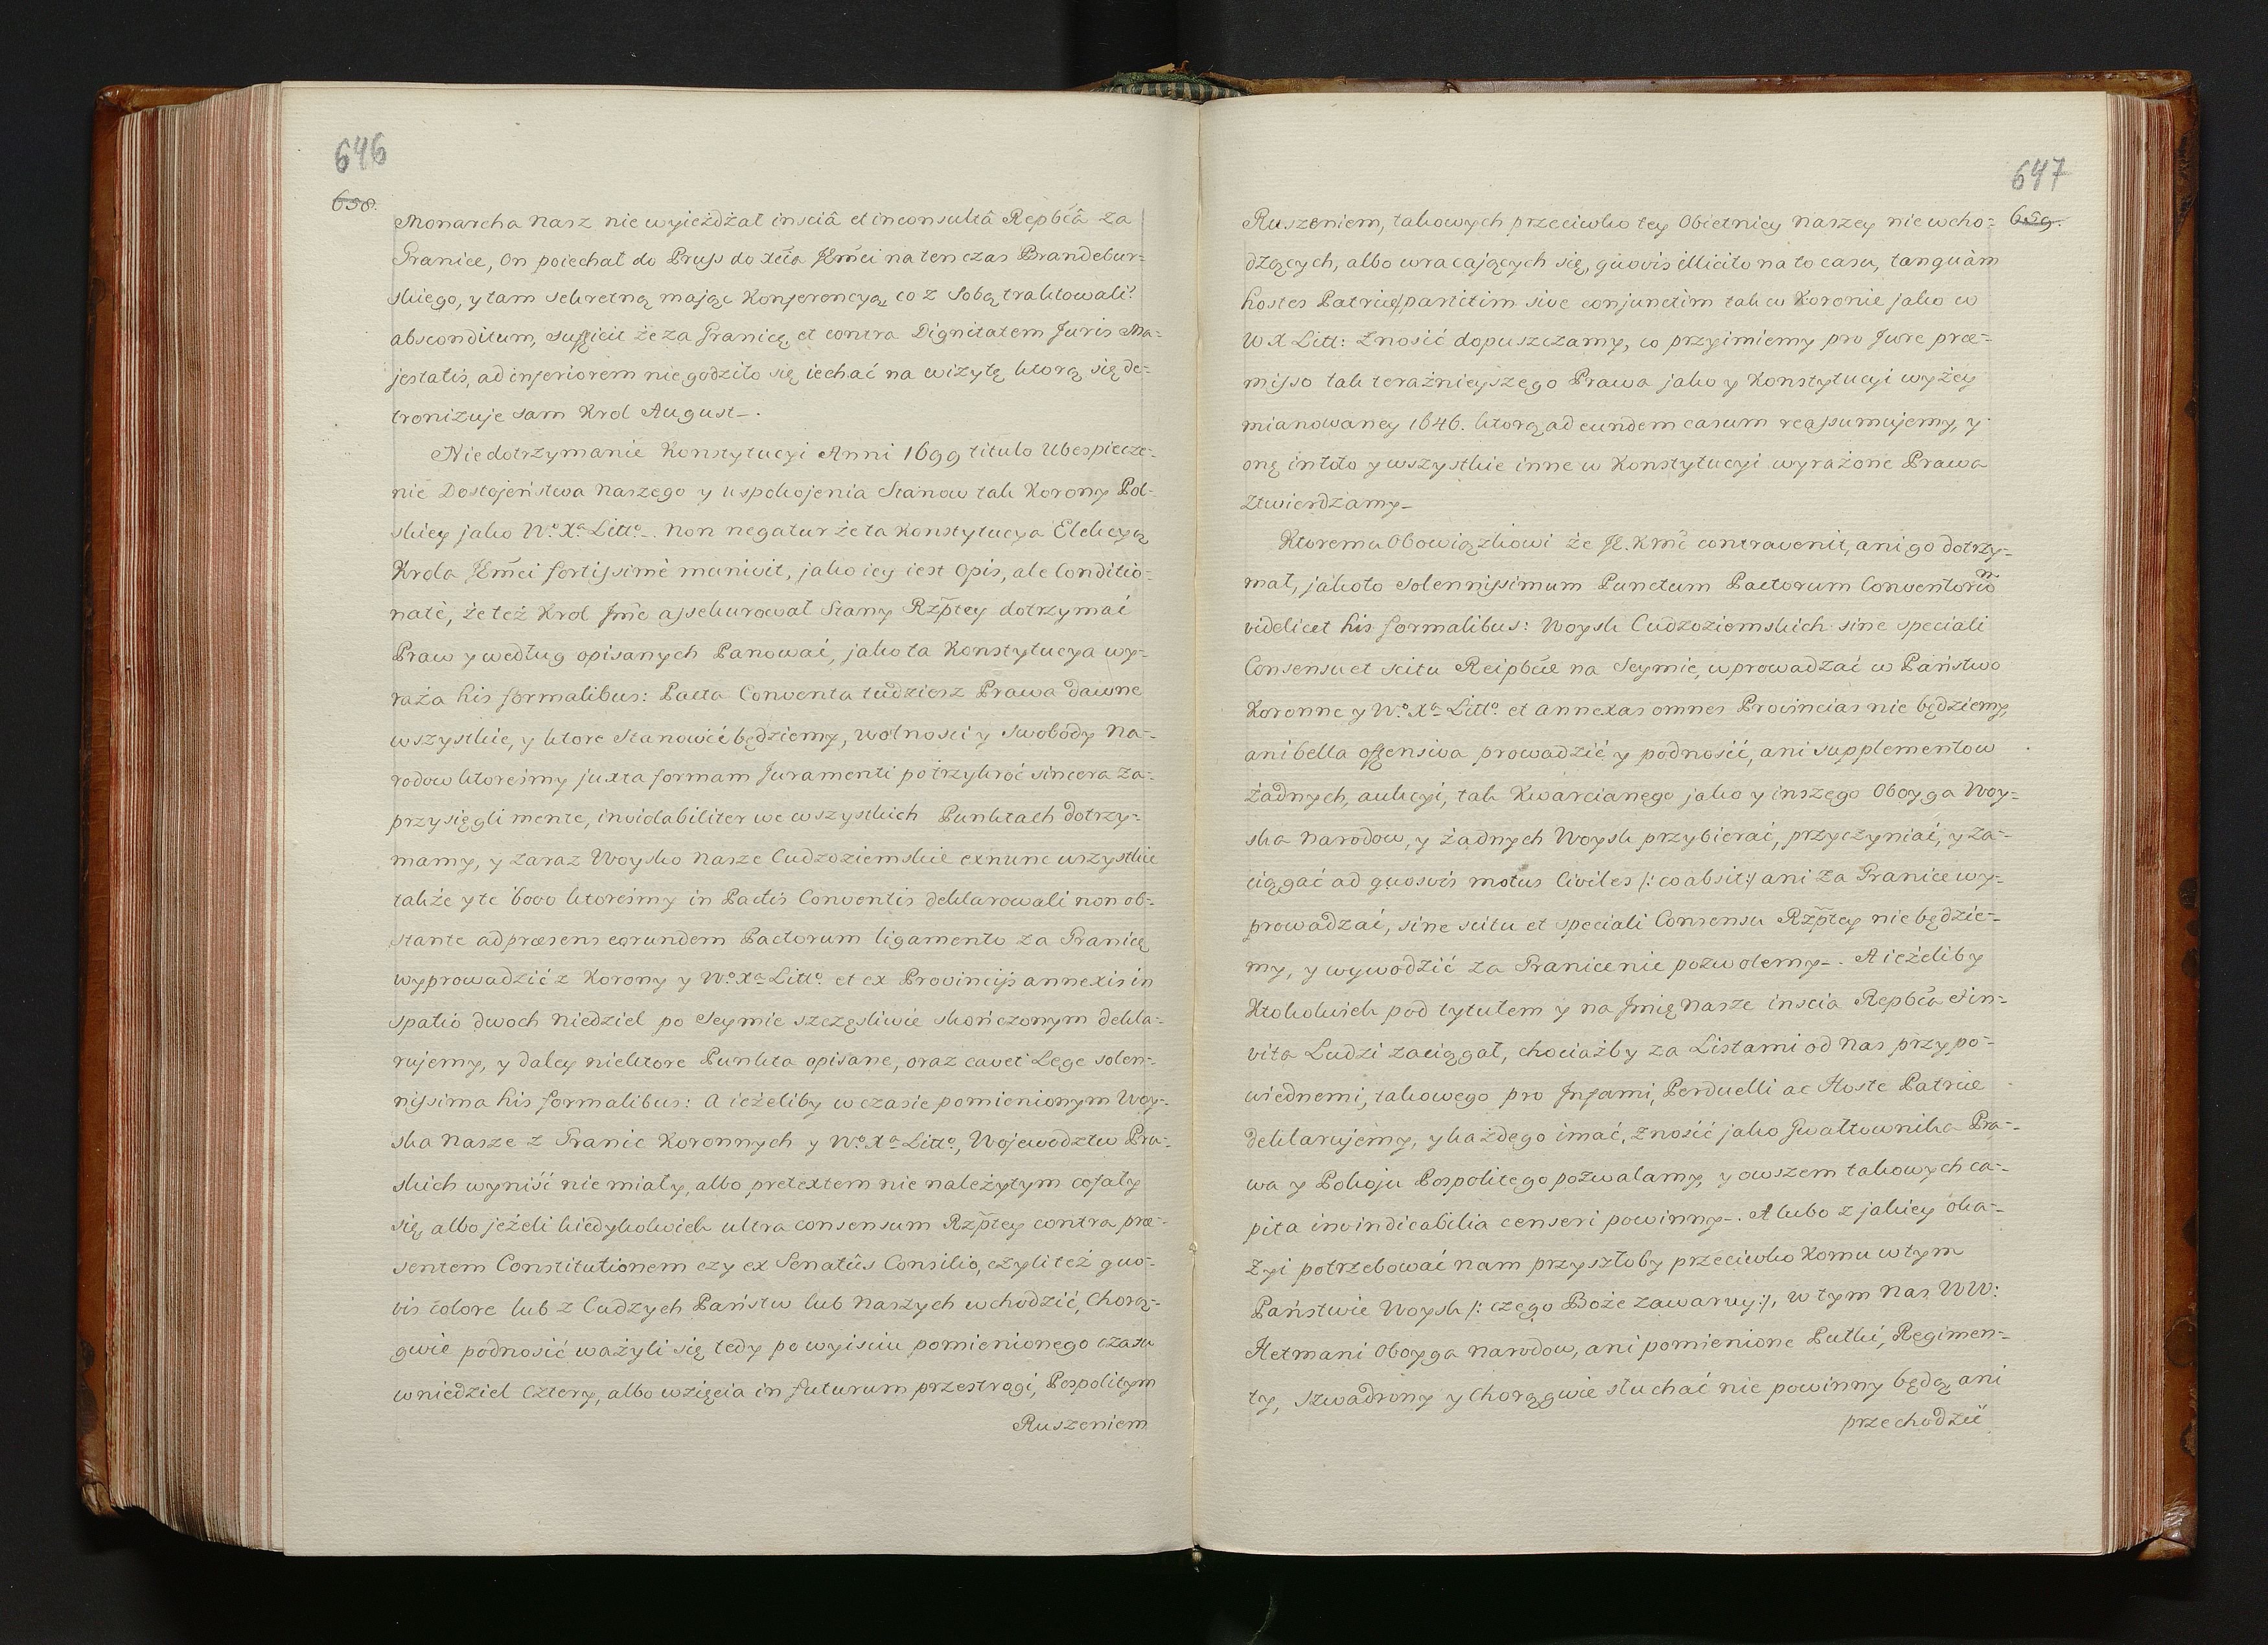 646
658.
Monarcha nasz nie wyieżdżał insciâ et inconsultâ Repbcâ za
Granice, On poiechał do Pruss do Xcia JEmci na ten czas Brandebur=
skiego, y tam sekretną mając Konferencyą, co z sobą traktowali?
absconditum, sufficit że za Granicę, et contra Dignitatem Juris Ma=
jestatis, ad inferiorem nie godziło się iechać na wizytę ktorą się de=
tronizuje sam Krol August_.
Niedotrzymanie Konstytucyi Anni 1699 titulo Ubespiecze=
nie Dostojeństwa Naszego y uspokojenia Stanow tak Korony Pol=
skiey jako Wo. Xa Litto_. non negatur że ta Konstytucya Elekcyą
Krola JEmci fortissimè munivit, jako iey iest Opis, ale Conditio=
natè, że też Krol Jmc assekurował Stany Rzptey dotrzymać
Praw y według opisanych Panować, jako ta Konstytucya wy=
raża his formalibus: Pacta Conventa tudziesz Prawa dawne
wszystkie, y ktore stanowić będziemy, wolnosci y Swobody Na=
rodow ktoresmy juxta formam Juramenti po trzykroć sincera za=
przysięgli mente, inviolabiliter we wszystkich Punktach dotrzy=
mamy, y zaraz Woysko nasze Cudzoziemskie exnunc wszystkie
także y te 6000 ktoresmy in Pactis Conventis deklarowali non ob=
stante adpræsens eorundem Pactorum ligamento za Granicę
wyprowadzić z Korony y Wo. Xa Litto. et ex Provincijs annexis in
spatio dwoch niedziel po Seymie szczęsliwie skończonym dekla=
rujemy, y daley niektore Punkta opisane, oraz cavet Lege solen=
nissima his formalibus: A ieżeliby w czasie pomienionym Woy=
ska nasze z Granic Koronnych y Wo. Xa Litto, Wojewodztw Pru=
skich wyniść nie miały, albo pretextem nie należytym cofały
się, albo jeżeli kiedykolwiek ultra consensum Rzptey contra præ=
sentem Constitutionem czy ex Senatûs Consilio, czyli też quo=
vis colore lub z Cudzych Państw lub Naszych wchodzić, Chorą=
gwie podnosić ważyli się, tedy po wyisciu pomienionego czasu
w niedziel cztery, albo wzięcia in futurum przestrogi, Pospolitym
Ruszeniem
647
659.
Ruszeniem, takowych przeciwko tey Obietnicy Naszey nie wcho=
dzących, albo wracających się, quovis illicito na to casu, tanquàm
hostes Patriæ partitim sive conjunctim tak w Koronie jako w
WX Litt: znosić dopuszczamy, co przyimiemy pro Jure præ=
misso tak teraźnieyszego Prawa jako y Konstytucyi wyżey
mianowaney 1646. ktorą ad eundem casum reassumujemy, y
onę intoto y wszystkie inne w Konstytucyi wyrażone Prawa
ztwierdzamy_
Ktoremu Obowiązkowi że JE. Krmc contravenit, ani go dotrzy=
mał, jako to solennissimum Punctum Pactorum Conventorum
videlicet his formalibus: Woysk Cudzoziemskich sine speciali
Consensu et scitu Reipbcæ na Seymie, wprowadzać w Państwo
Koronne y Wo. Xa Litto. et annexas omnes Provincias nie będziemy,
ani bella offensiva prowadzić y podnosić, ani supplementow
żadnych, aukcyi, tak Kwarcianego jako y inszego Oboyga Woy=
ska narodow, y żadnych Woysk przybierać, przyczyniać, y za=
ciągać ad quosvis motus Civiles /: co absit:/ ani za Granice wy=
prowadzać, sine scitu et speciali Consensu Rzptey nie będzie=
my, y wywodzić za Granice nie pozwolemy_. A ieżeliby
Ktokolwiek pod tytułem y na Jmię Nasze inscia Repbca et in=
vita Ludzi zaciągał, chociażby za Listami od Nas przypo=
wiednemi, takowego pro Infami, Perduelli ac Hoste Patriæ
deklarujemy, y każdego imać, znosić jako Gwałtownika Pra=
wa y Pokoju Pospolitego pozwalamy, y owszem takowych ca=
pita invindicabilia censeri powinny_. A lubo z jakiey oka=
zyi potrzebować nam przyszłoby przeciwko Komu w tym
Państwie Woysk /: czego Boże zawaruy:/, w tym nas WW:
Hetmani Oboyga narodow, ani pomienione Pułki, Regimen=
ty, szwadrony y Chorągwie słuchać nie powinny będą, ani
przechodzić